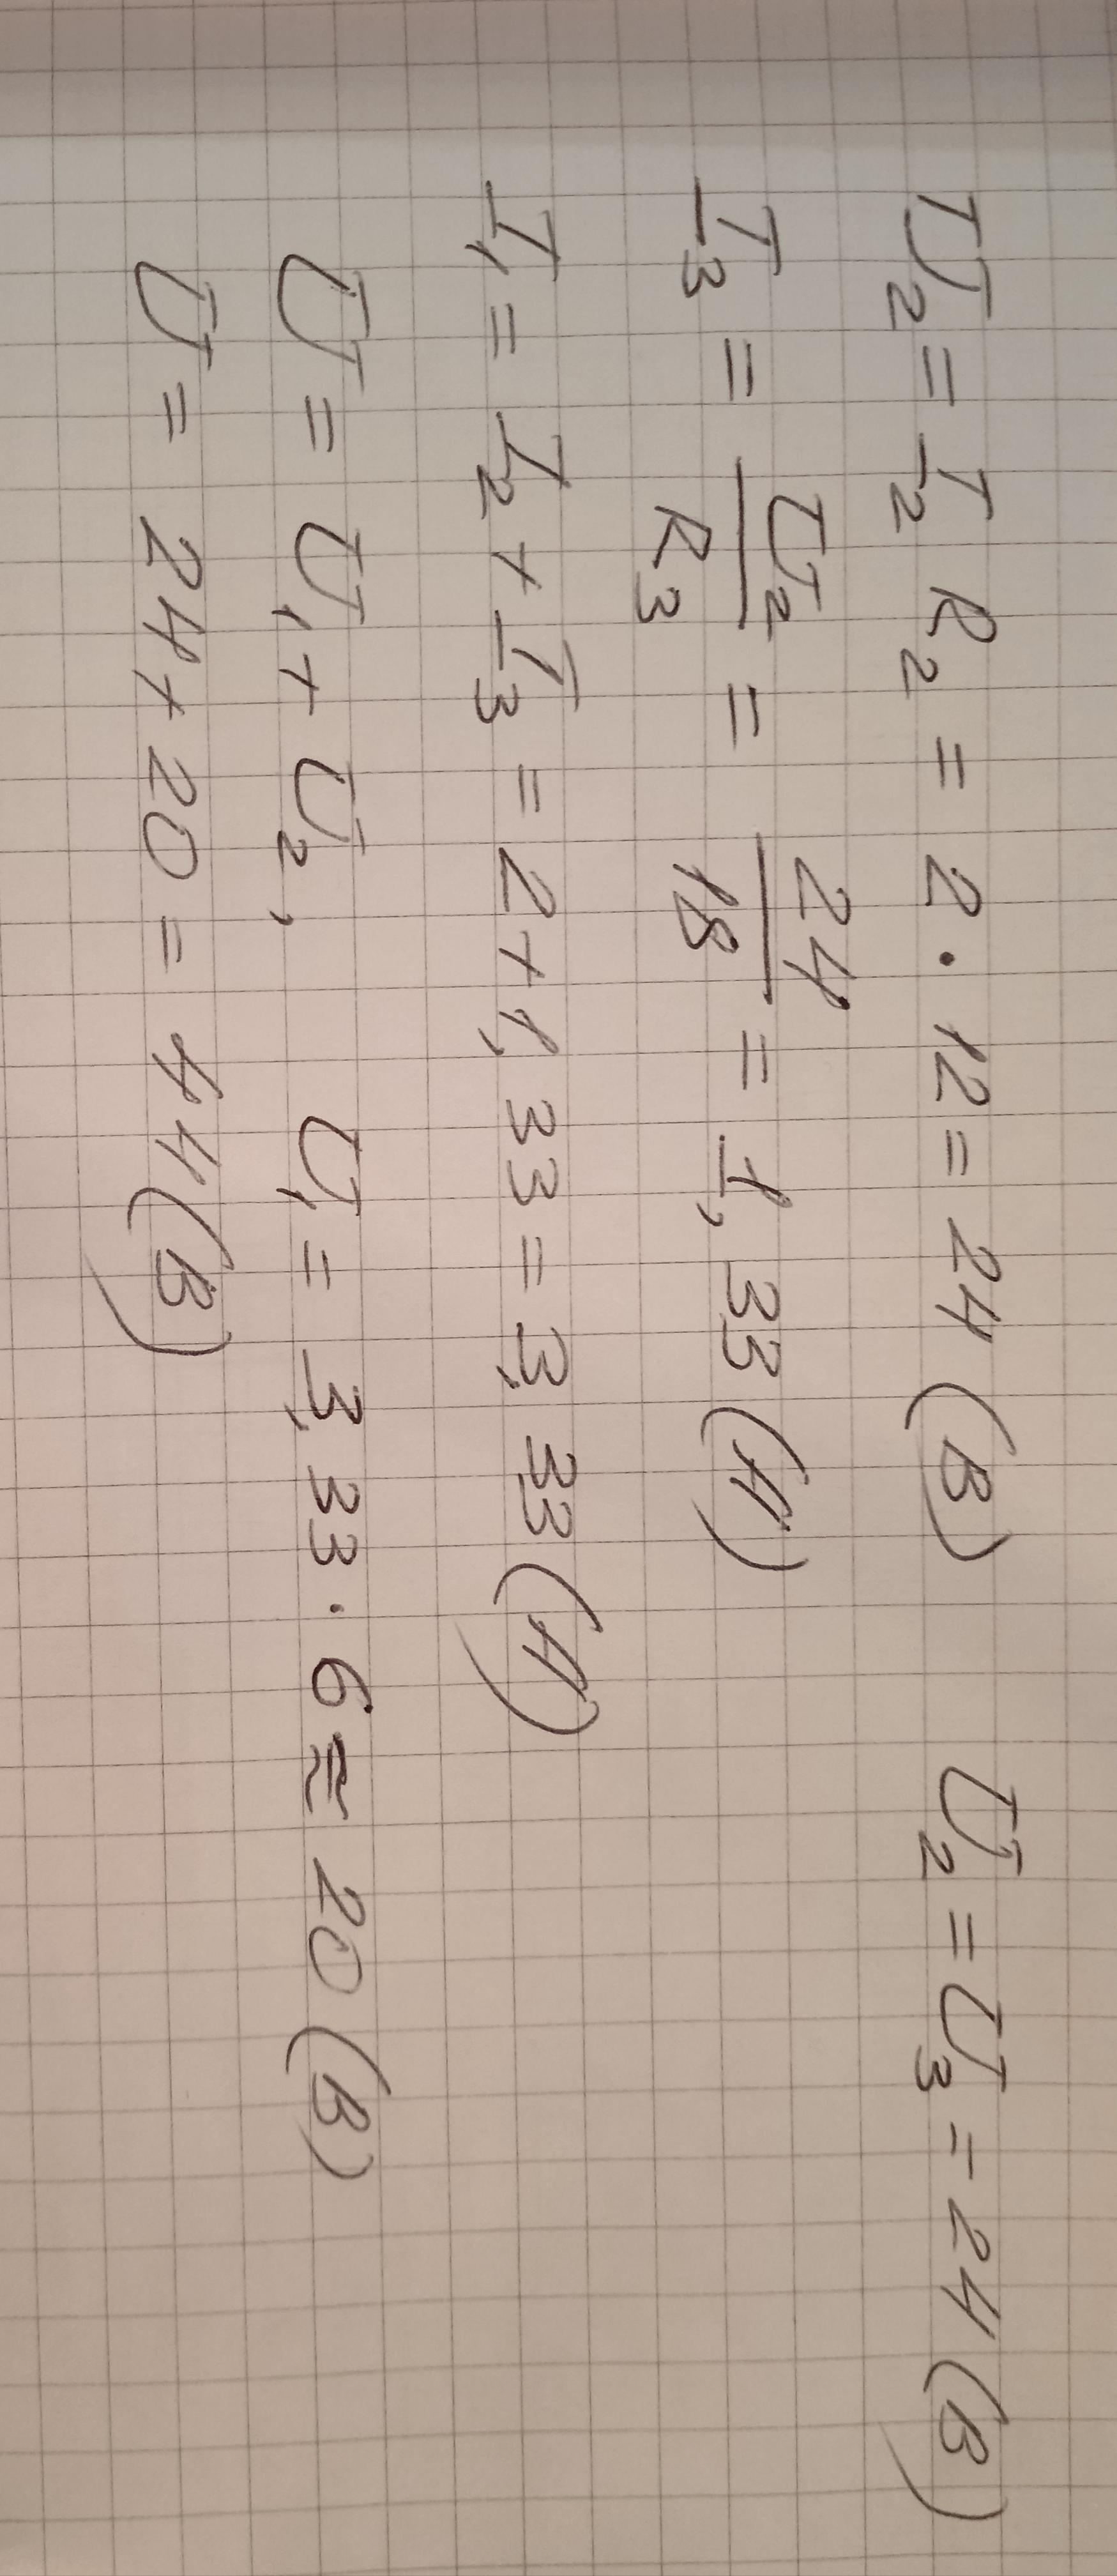 U₂ = I₂ R₂ = 2 · 12 = 24 (В) U₂ = U₃ = 24 (В)
I₃ = U₂/R₃ = 24/18 = 1,33 (А)
I₁ = I₂ + I₃ = 2 + 1,33 = 3,33 (А)
U = U₁ + U₂, U₁ = 3,33 · 6 ≈ 20 (В)
U = 24 + 20 = 44 (В)